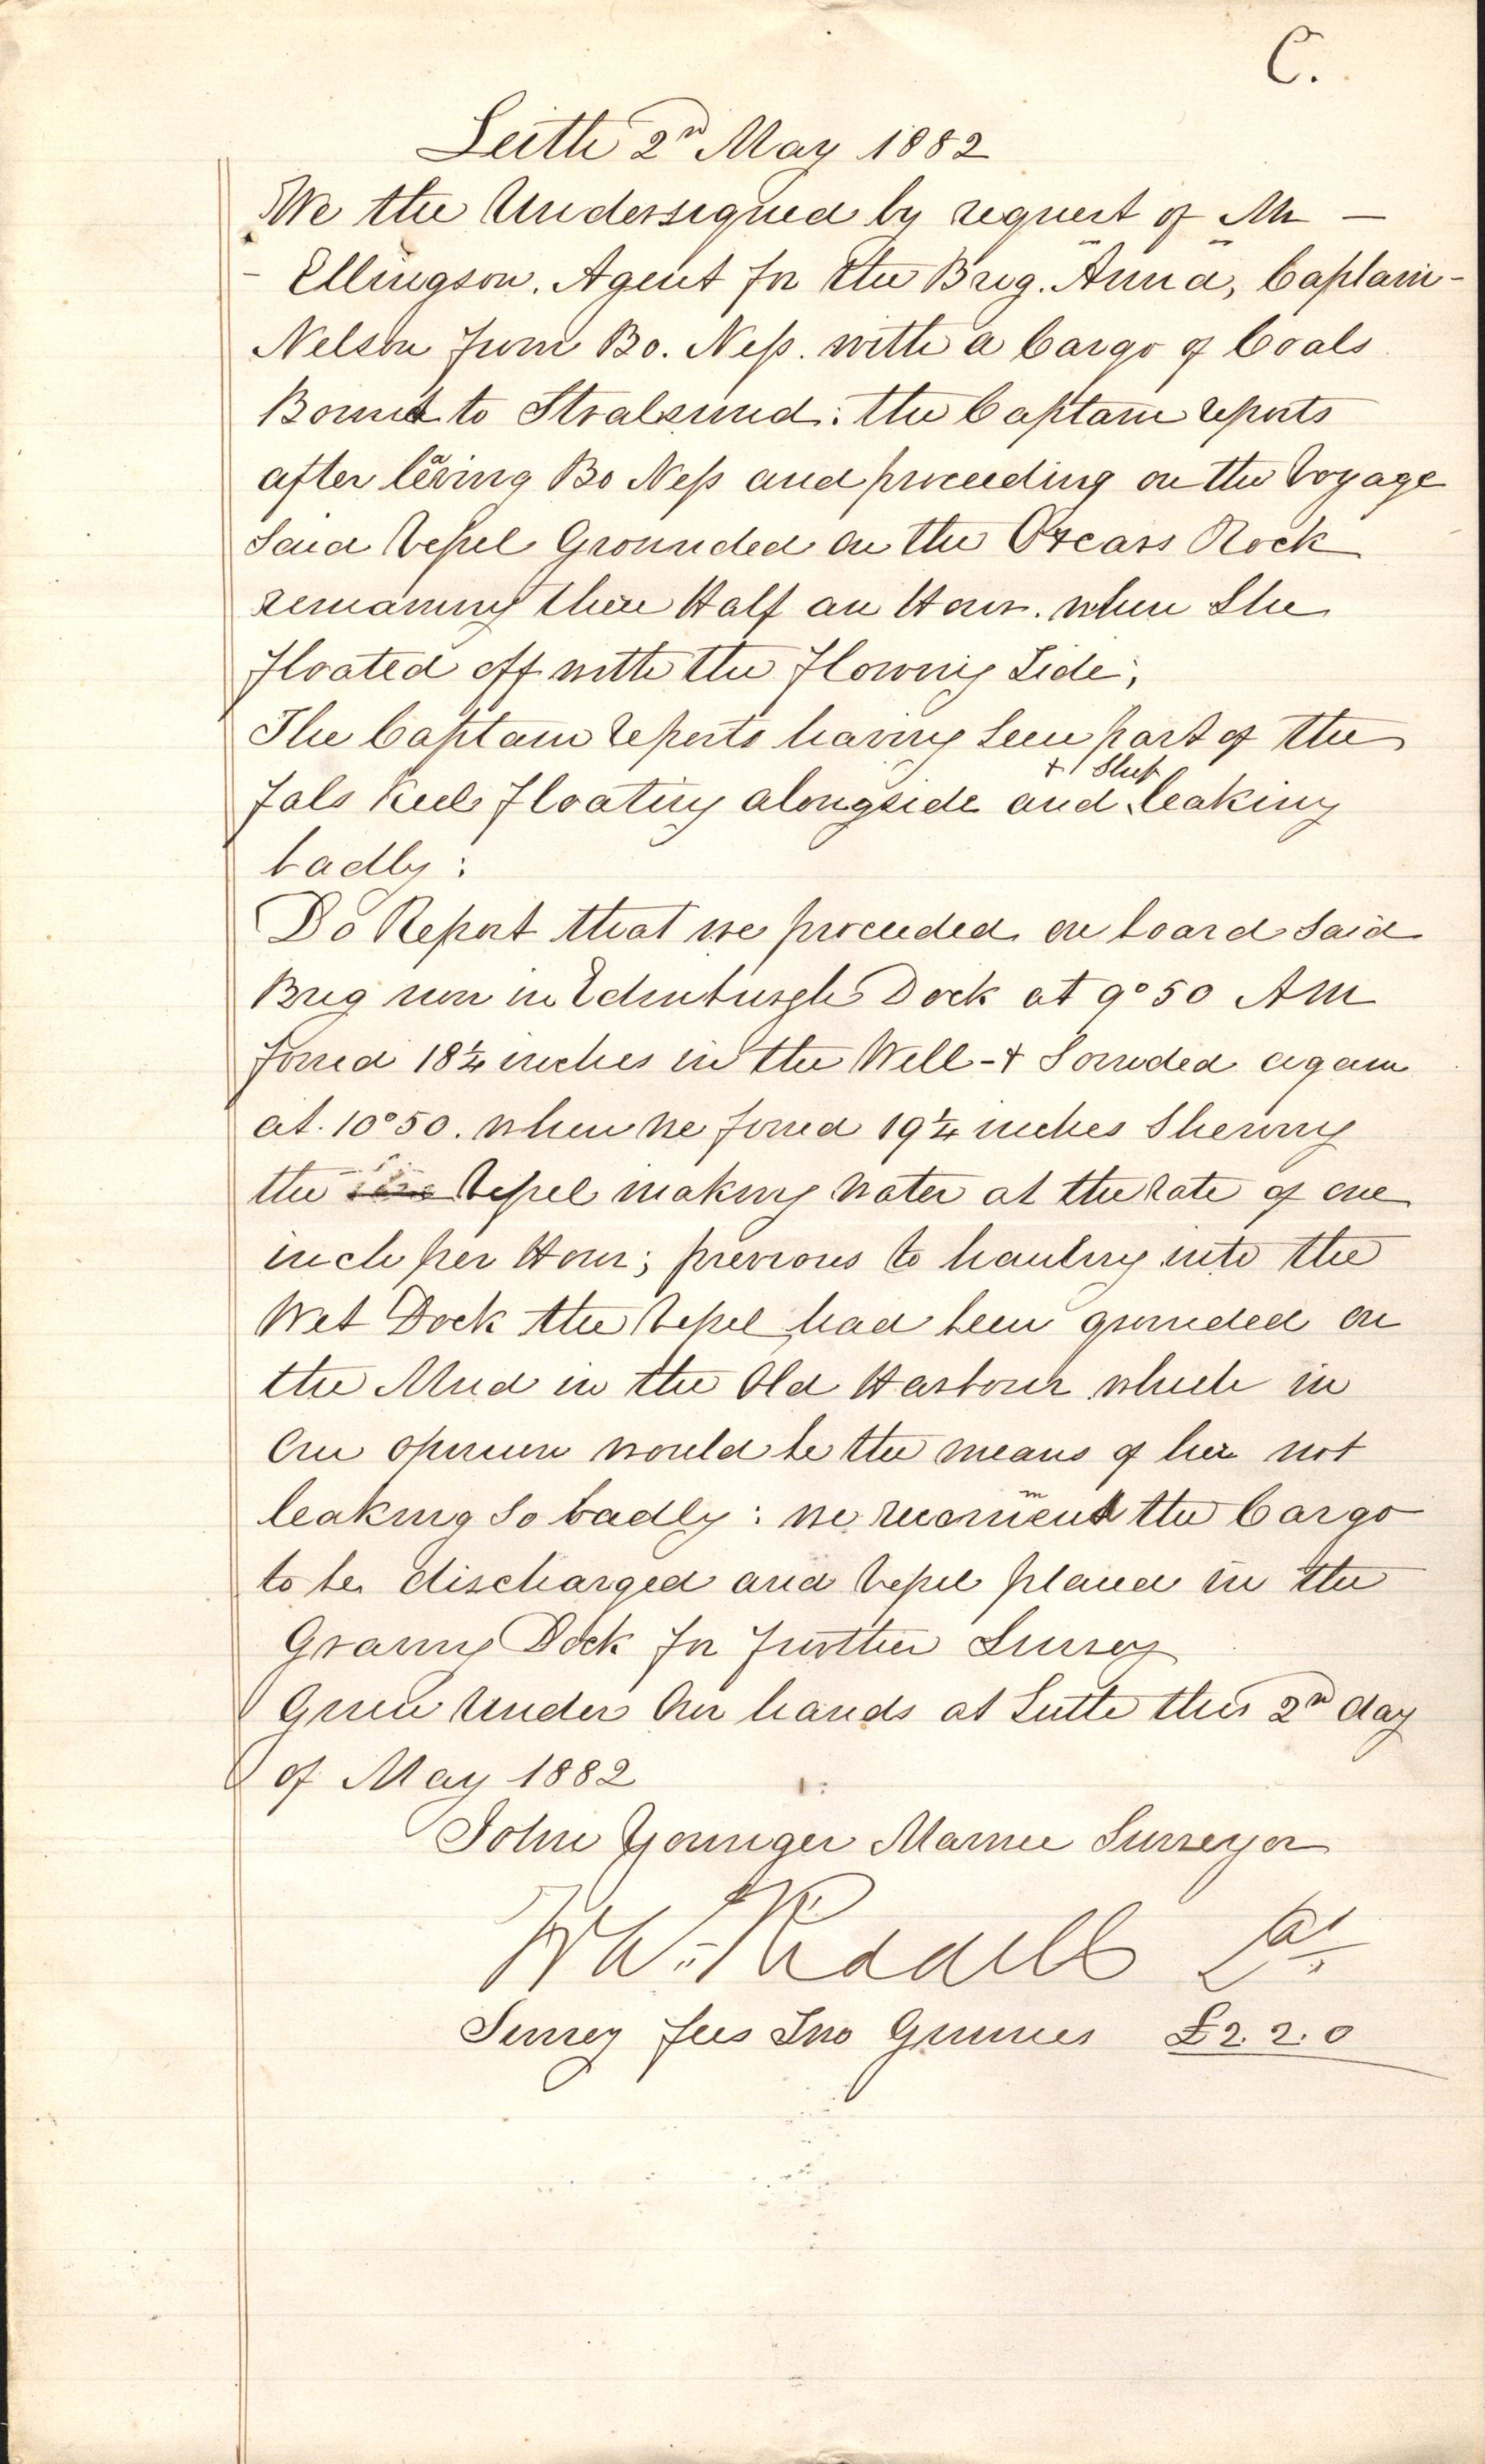 C.
Leith 2nd May 1882
We the Undersigned by request of Mr —
- Ellingson. Agent for the Brig. "Anna", Captain -
Nelson from Bo. Ness. with a Cargo of Coals
Bound to Stralsund: the Captain reports
after leaving Bo Ness and proceeding on the Voyage
Said Vessel Grounded on the Oxcars Rock
remaining there Half an Hour. when She
floated off with the flowing Tide;
The Captain reports having Seen part of the
fals Keel floating alongside and + Ship leaking
badly:
Do Report that we proceeded on board Said
Brig now in Edinburgh Dock at 9°50 AM
found 18¼ inches in the Well - + Sounded again
at. 10°50. when we found 19¼ inches Shewing
the Vessel making water at the rate of one
inch per Hour; previous to hauling into the
Wet Dock the Vessel had been grounded on
the Mud in the Old Harbour which in
Our opinion would be the means of her not
leaking So badly: we recommend the Cargo
to be discharged and Vessel placed in the
Graving Dock for further Survey
Given Under Our hands at Leith this 2nd day
of May 1882
John Younger Marine Surveyor
Wm Riddell
Survey fees Two Guineas £2.2.0